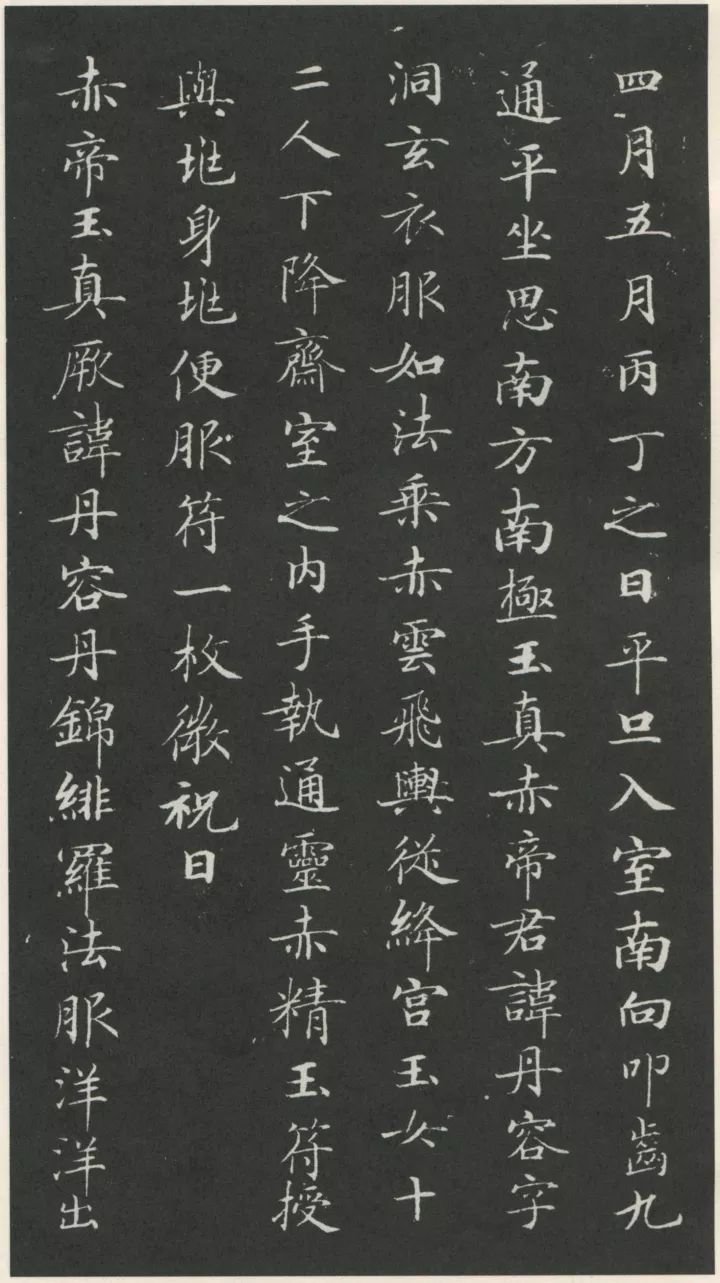 四月五月丙丁之日平旦入室南向叩齒九
通平坐思南方南極玉真赤帝君諱丹容字
洞玄衣服如法乘赤雲飛輿從絳宮玉女十
二人下降齋室之内手執通靈赤精玉符授
與地身地便服符一枚微祝曰
赤帝玉真厥諱丹容丹錦緋羅法服洋洋出